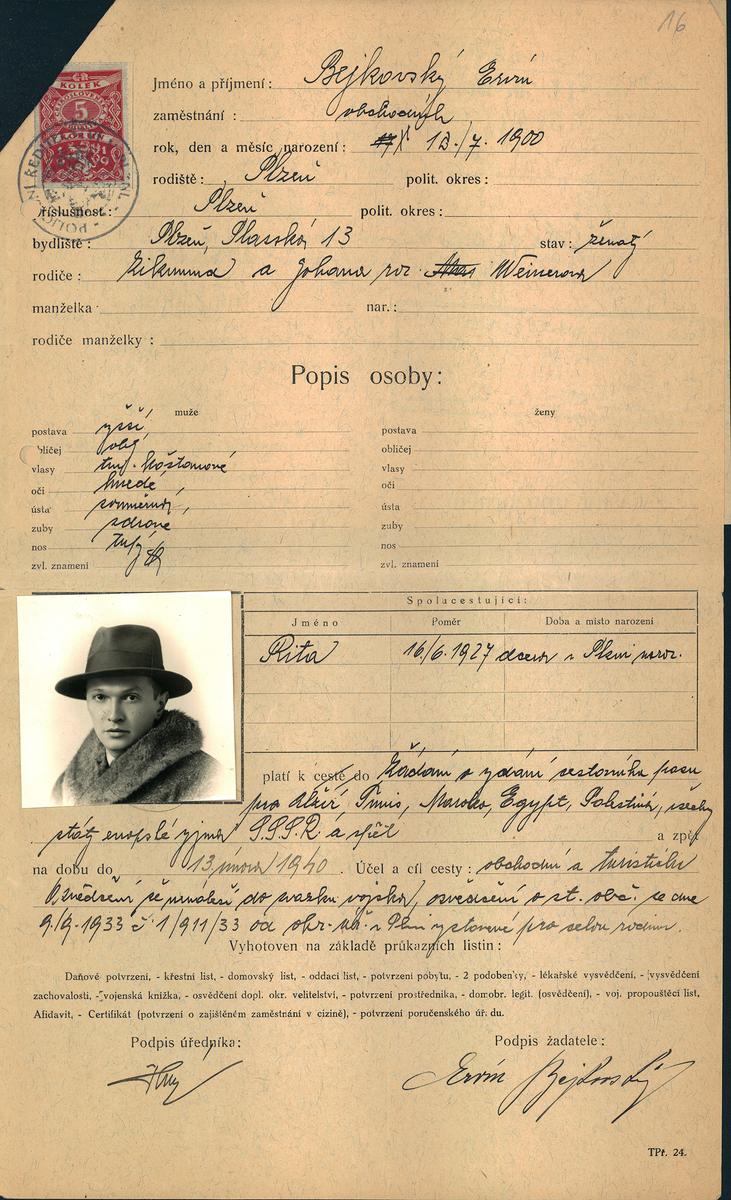 16
ČR
KOLEK
5
Jméno a příjmení: Bejkovský Ervín
zaměstnání: obchodník
rok, den a měsíc narození: 13./7. 1900
rodiště: Plzeň polit. okres:
příslušnost: Plzeň polit. okres:
bydliště: Plzeň, Plasská 13 stav: ženatý
rodiče: Zikmund a Johana roz. Weinerova
manželka nar.:
rodiče manželky:
Popis osoby:
muže ženy
postava vyšší postava
obličej obl. obličej
vlasy tm. kaštanové vlasy
oči hnedé oči
ústa souměrná ústa
zuby zdravé zuby
nos nos
zvl. znamení zvl. znamení
Spolucestující:
Jméno Poměr Doba a místo narození
Rita 16/6. 1927 dcera v Plzni naroz.
platí k cestě do Žádání o vydání cestovního pasu
pro Alžír, Tunis, Maroko, Egypt, Palestinu, všechny
státy evropské vyjma S.S.S.R. a zpět a zpět
na dobu do 13. února 1940. Účel a cíl cesty: obchodní a turistická
Osvědčení se nenáleží do svazku vojska, osvědčení o st. obč. ze dne
9./9. 1933 č. 1/911/33 od okr. úř. v Plzni vystavené pro celou rodinu.
Vyhotoven na základě průkazních listin:
Daňové potvrzení, - křestní list, - domovský list, - oddací list, - potvrzení pobytu, - 2 podobenky, - lékařské vysvědčení, - vysvědčení
zachovalosti, - vojenská knížka, - osvědčení dopl. okr. velitelství, - potvrzení prostředníka, - domobr. legit. (osvědčení), - voj. propouštěcí list,
Afidavit, - Certifikát (potvrzení o zajištěném zaměstnání v cizině), - potvrzení poručenského úřadu.
Podpis úředníka: Podpis žadatele:
Ervín Bejkovský
TPt. 24.